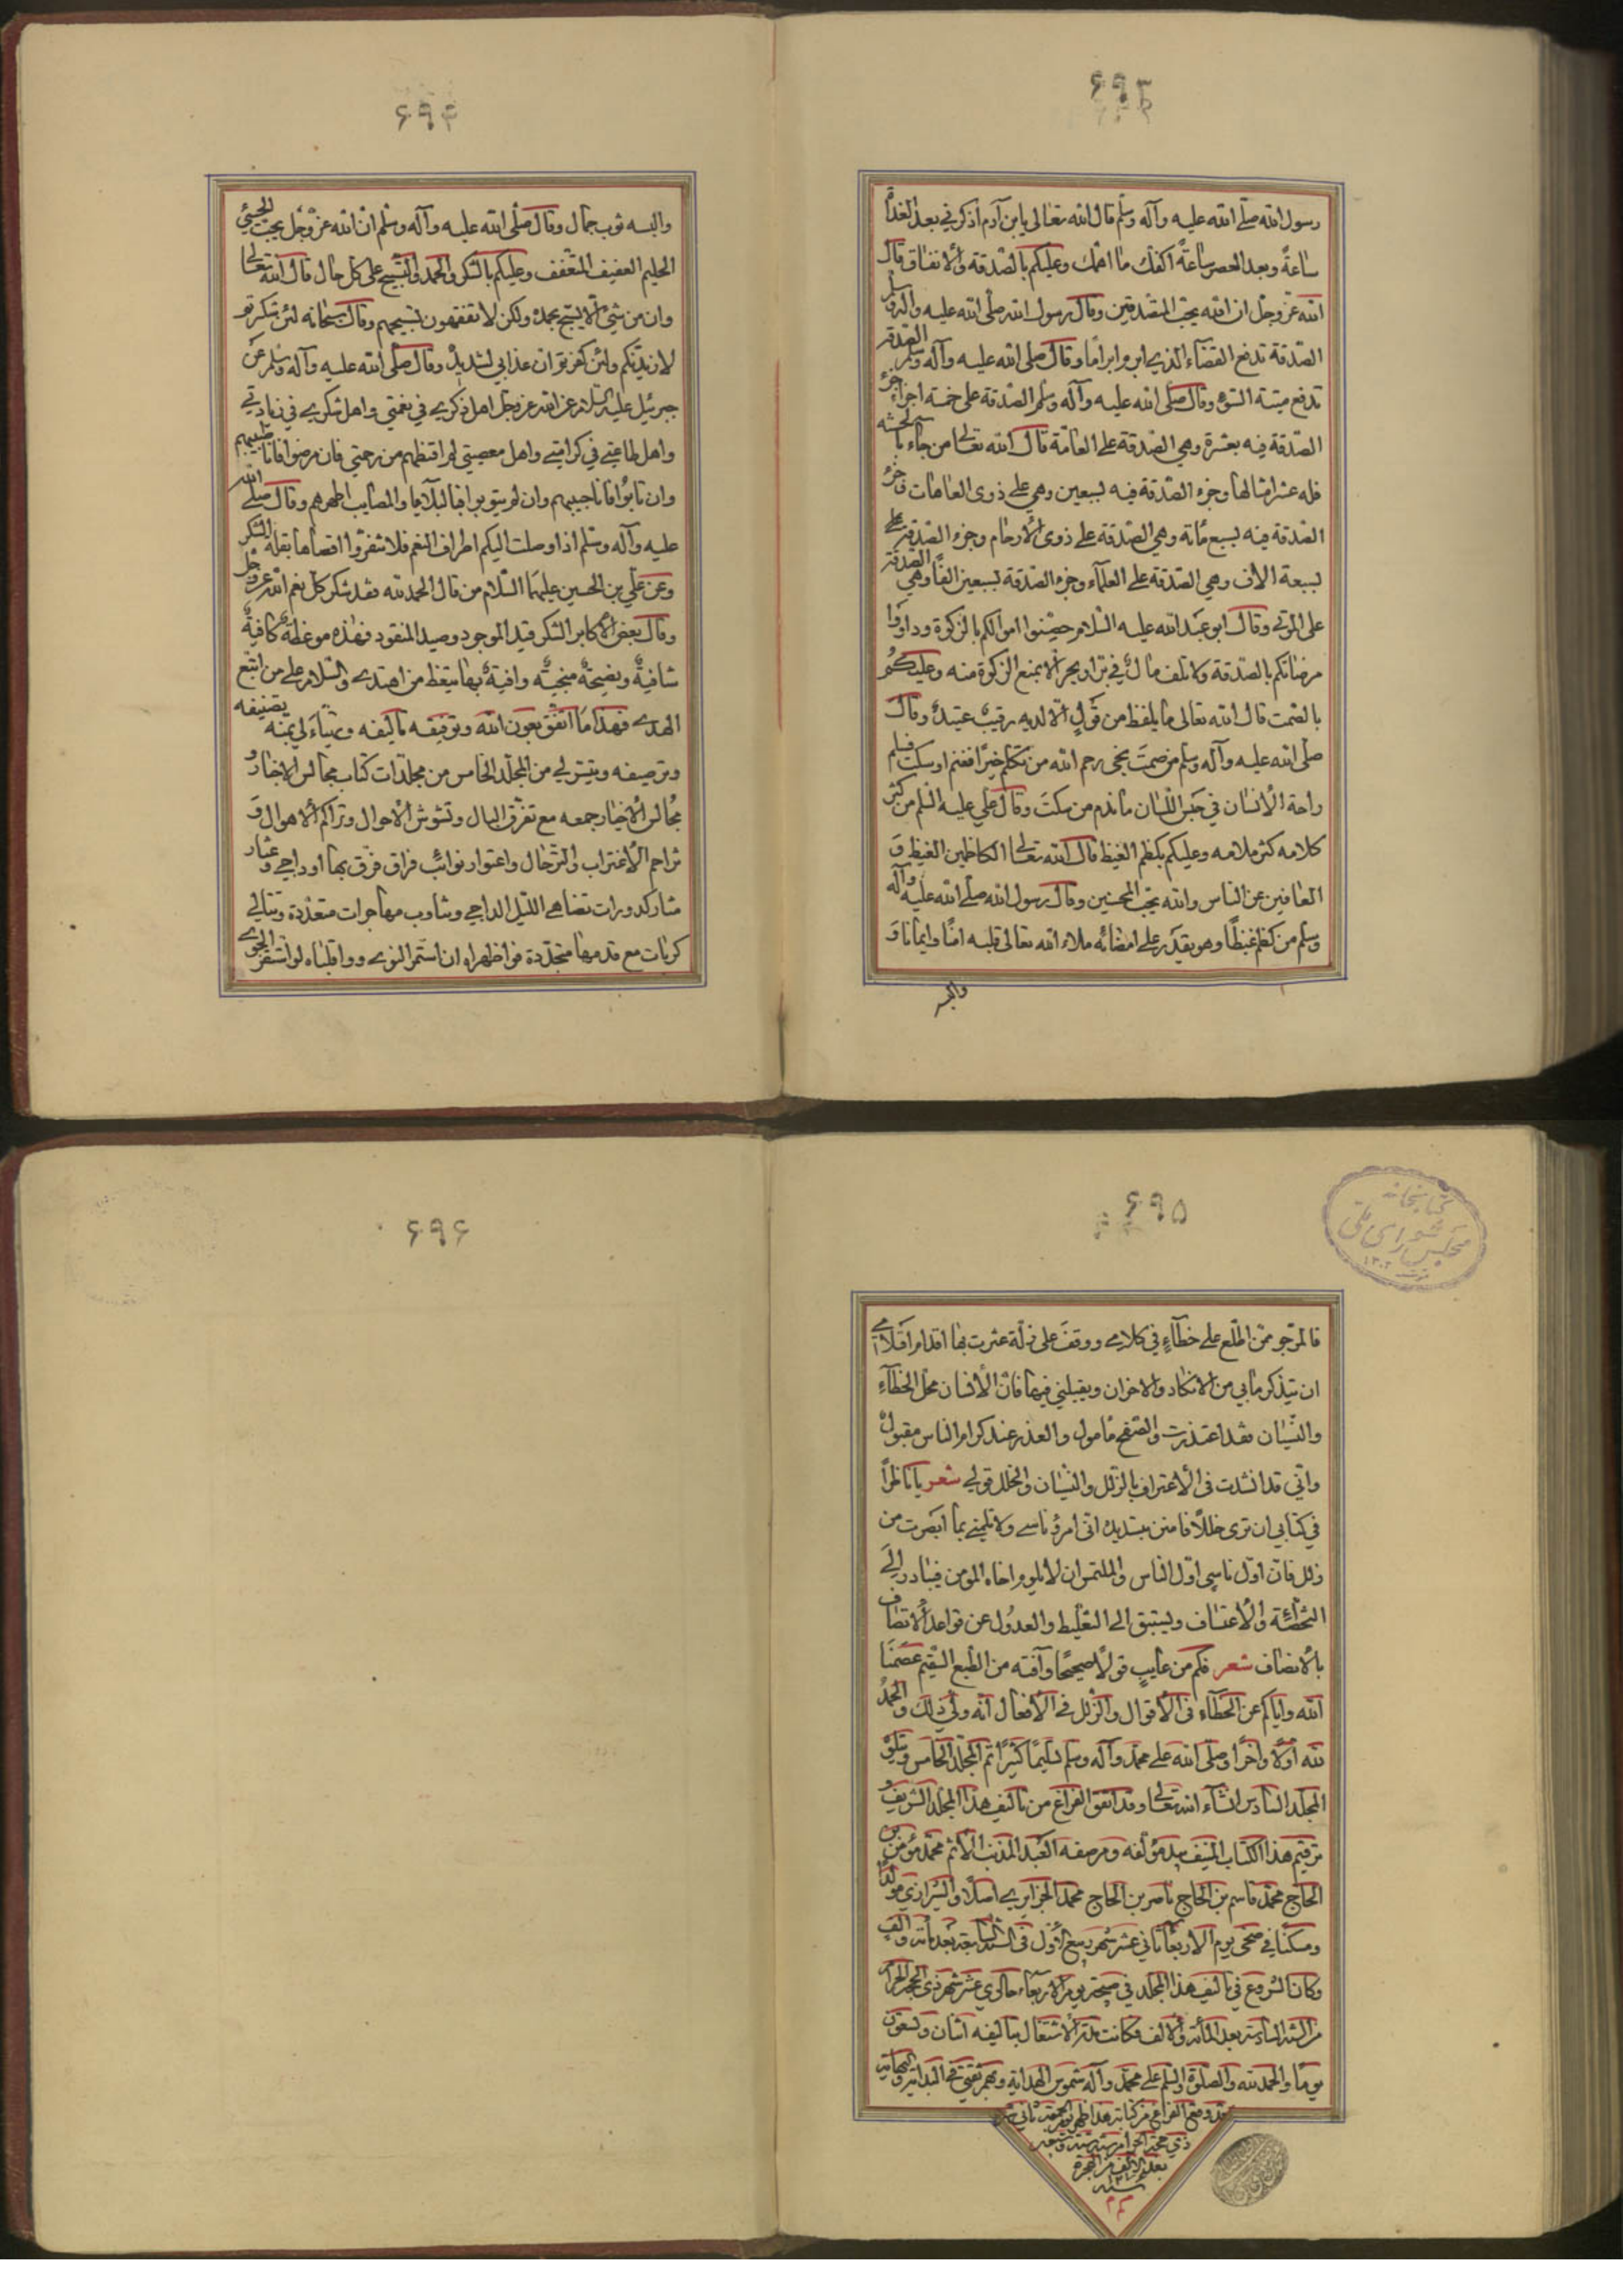 ۶۹۳
رسول الله صلى الله عليه وآله وسلم قال الله تعالى يا بن آدم اذكرني بعد الغداة
ساعة وبعد العصر ساعة اكفك ما اهمك وعليكم بالصدقة والانفاق قال
الله عز وجل ان الله يحب المتصدقين وقال رسول الله صلى الله عليه وآله وسلم
الصدقة تدفع القضاء الذي ابرم ابراما وقال صلى الله عليه وآله وسلم الصدقة
تدفع ميتة السوء وقال صلى الله عليه وآله وسلم الصدقة على خمسة اجزاء جزء
الصدقة فيه بعشرة وهي الصدقة على العامة قال الله تعالى من جاء بالحسنة
فله عشر امثالها وجزء الصدقة فيه بسبعين وهي على ذوي العاهات وجزء
الصدقة فيه بسبع مائة وهي الصدقة على ذوي الارحام وجزء الصدقة على
بسبعة الاف وهي الصدقة على العلماء وجزء الصدقة بسبعين الفا وهي الصدقة
على الموتى وقال ابو عبد الله عليه السلام حصنوا اموالكم بالزكوة وداووا
مرضاكم بالصدقة ولا تلف مال في بر او بحر الا بمنع الزكوة منه وعليكم
بالصمت قال الله تعالى ما يلفظ من قول الا لديه رقيب عتيد وقال
صلى الله عليه وآله وسلم من صمت نجى رحم الله من تكلم خيرا فغنم او سكت فسلم
راحة الانسان في حبس اللسان ما ندم من سكت وقال علي عليه السلم من كثر
كلامه كثر ملامه وعليكم بكظم الغيظ قال الله تعالى الكاظمين الغيظ و
العافين عن الناس والله يحب المحسنين وقال رسول الله صلى الله عليه وآله
وسلم من كظم غيظا وهو يقدر على امضائه ملاء الله تعالى قلبه امنا وايمانا و
والبسه
۶۹۴
والبسه ثوب جمال وقال صلى الله عليه وآله وسلم ان الله عز وجل يحب الحيي
الحليم العفيف المتعفف وعليكم بالشكر والحمد لي التسبيح على كل حال قال الله تعالى
وان من شئ الا يسبح بحمده ولكن لا تفقهون تسبيحهم وقال سبحانه لئن شكرتم
لازيدنكم ولئن كفرتم ان عذابي لشديد وقال صلى الله عليه وآله وسلم عن
جبرئيل عليه السلام عن الله عز وجل اهل ذكري في نعمتي واهل شكري في زيادتي
واهل طاعتي في كرامتي واهل معصيتي لم اقنطهم من رحمتي فان مرضوا فانا طبيبهم
وان تابوا فانا حبيبهم وان لم يتوبوا فبالبلايا والمصايب اطهرهم وقال صلى الله
عليه وآله وسلم اذا وصلت اليكم اطراف النعم فلا تنفروا اقصاها بقلة الشكر
وعن علي بن الحسين عليهما السلام من قال الحمد لله فقد شكر كل نعم الله عز وجل
وقال بعض الاكابر الشكر قيد الموجود وصيد المفقود فهذه موعظة كافية
شافية ونصيحة منجية وافية بها يتعظ من اهتدى والسلام على من اتبع
الهدى فهذا ما اتفق بعون الله وتوفيقه تاليفه وتهياء لي بمنه تصنيفه
وترصيفه وتيسر لي من المجلد الخامس من مجلدات كتاب مجالس الاخبار و
مجالس الاخيار جمعه مع تفرق البال وتشوش الاحوال وتراكم الاهوال و
تزاحم الاغتراب والترحال واعتوار نوائب فراق فرق بها اوداجي و
مشار كدورات تضاهي الليل الداجي وتناوب مهاجرات متعددة وتتالي
كربات مع قدمها متجددة فوا ظهراه ان استمر النوى وواقلباه لو استقر الجوى
۶۹۵
كتابخانه مجلس شوراى ملى
۱۳۰۲
فالمرجو ممن اطلع على خطاء في كلامي ووقف على زلة عثرت بها اقدام اقلامي
ان يتذكر ما بي من الانكاد والاحزان ويقبلني فيها فان الانسان محل الخطاء
والنسيان فقد اعتذرت والصفح مامول والعذر عند كرام الناس مقبول
واني قد انشدت في الاعتراف بالزلل والنسيان والخلل قولي شعر يا ناظرا
في كتابي ان ترى خللا فامنن بتسديده اني امرؤ ناسي ولا تلمني بما ابصرت من
زلل فان اول ناسي اول الناس والملتمس ان لا يلوم اخاه المؤمن فيبادر الى
التخطئة والاعتساف ويستبق الى التغليط والعدول عن قواعد الاتصاف
بالانصاف شعر فكم من عايب قولا صحيحا وآفته من الطبع السقيم عصمنا
الله واياكم عن الخطاء في الاقوال والزلل في الافعال انه ولي ذلك والحمد
لله اولا واخرا وصلى الله على محمد وآله وسلم تسليما كثيرا تم المجلد الخامس ويتلوه
المجلد السادس انشاء الله تعالى وقد اتفق الفراغ من تاليف هذا المجلد الشريف و
ترقيم هذا الكتاب المنيف بيد مؤلفه ومرصفه العبد المذنب الاثم محمد مؤمن بن
الحاج محمد قاسم بن الحاج ناصر بن الحاج محمد الجزايري اصلا والشيرازي مولدا
ومسكنا في ضحى يوم الاربعا ثاني عشر شهر ربيع الاول في السنة السابعة بعد مائة والف
وكان الشروع في تاليف هذا المجلد في صبيحة يوم الاربعاء حادي عشر شهر ذي الحجة الحرام
من السنة السادسة بعد المائة والالف وكانت مدة الاشتغال بتاليفه اثنان وتسعون
يوما والحمد لله والصلوة والسلم على محمد وآله شموس الهداية وبهم ثقتي في البداية والنهاية
قد وقع الفراغ من كتابة هذا ظهر يوم الجمعة ثاني
ذي حجة الحرام
بعد الالف من الهجرة
سنة
۶۹۶